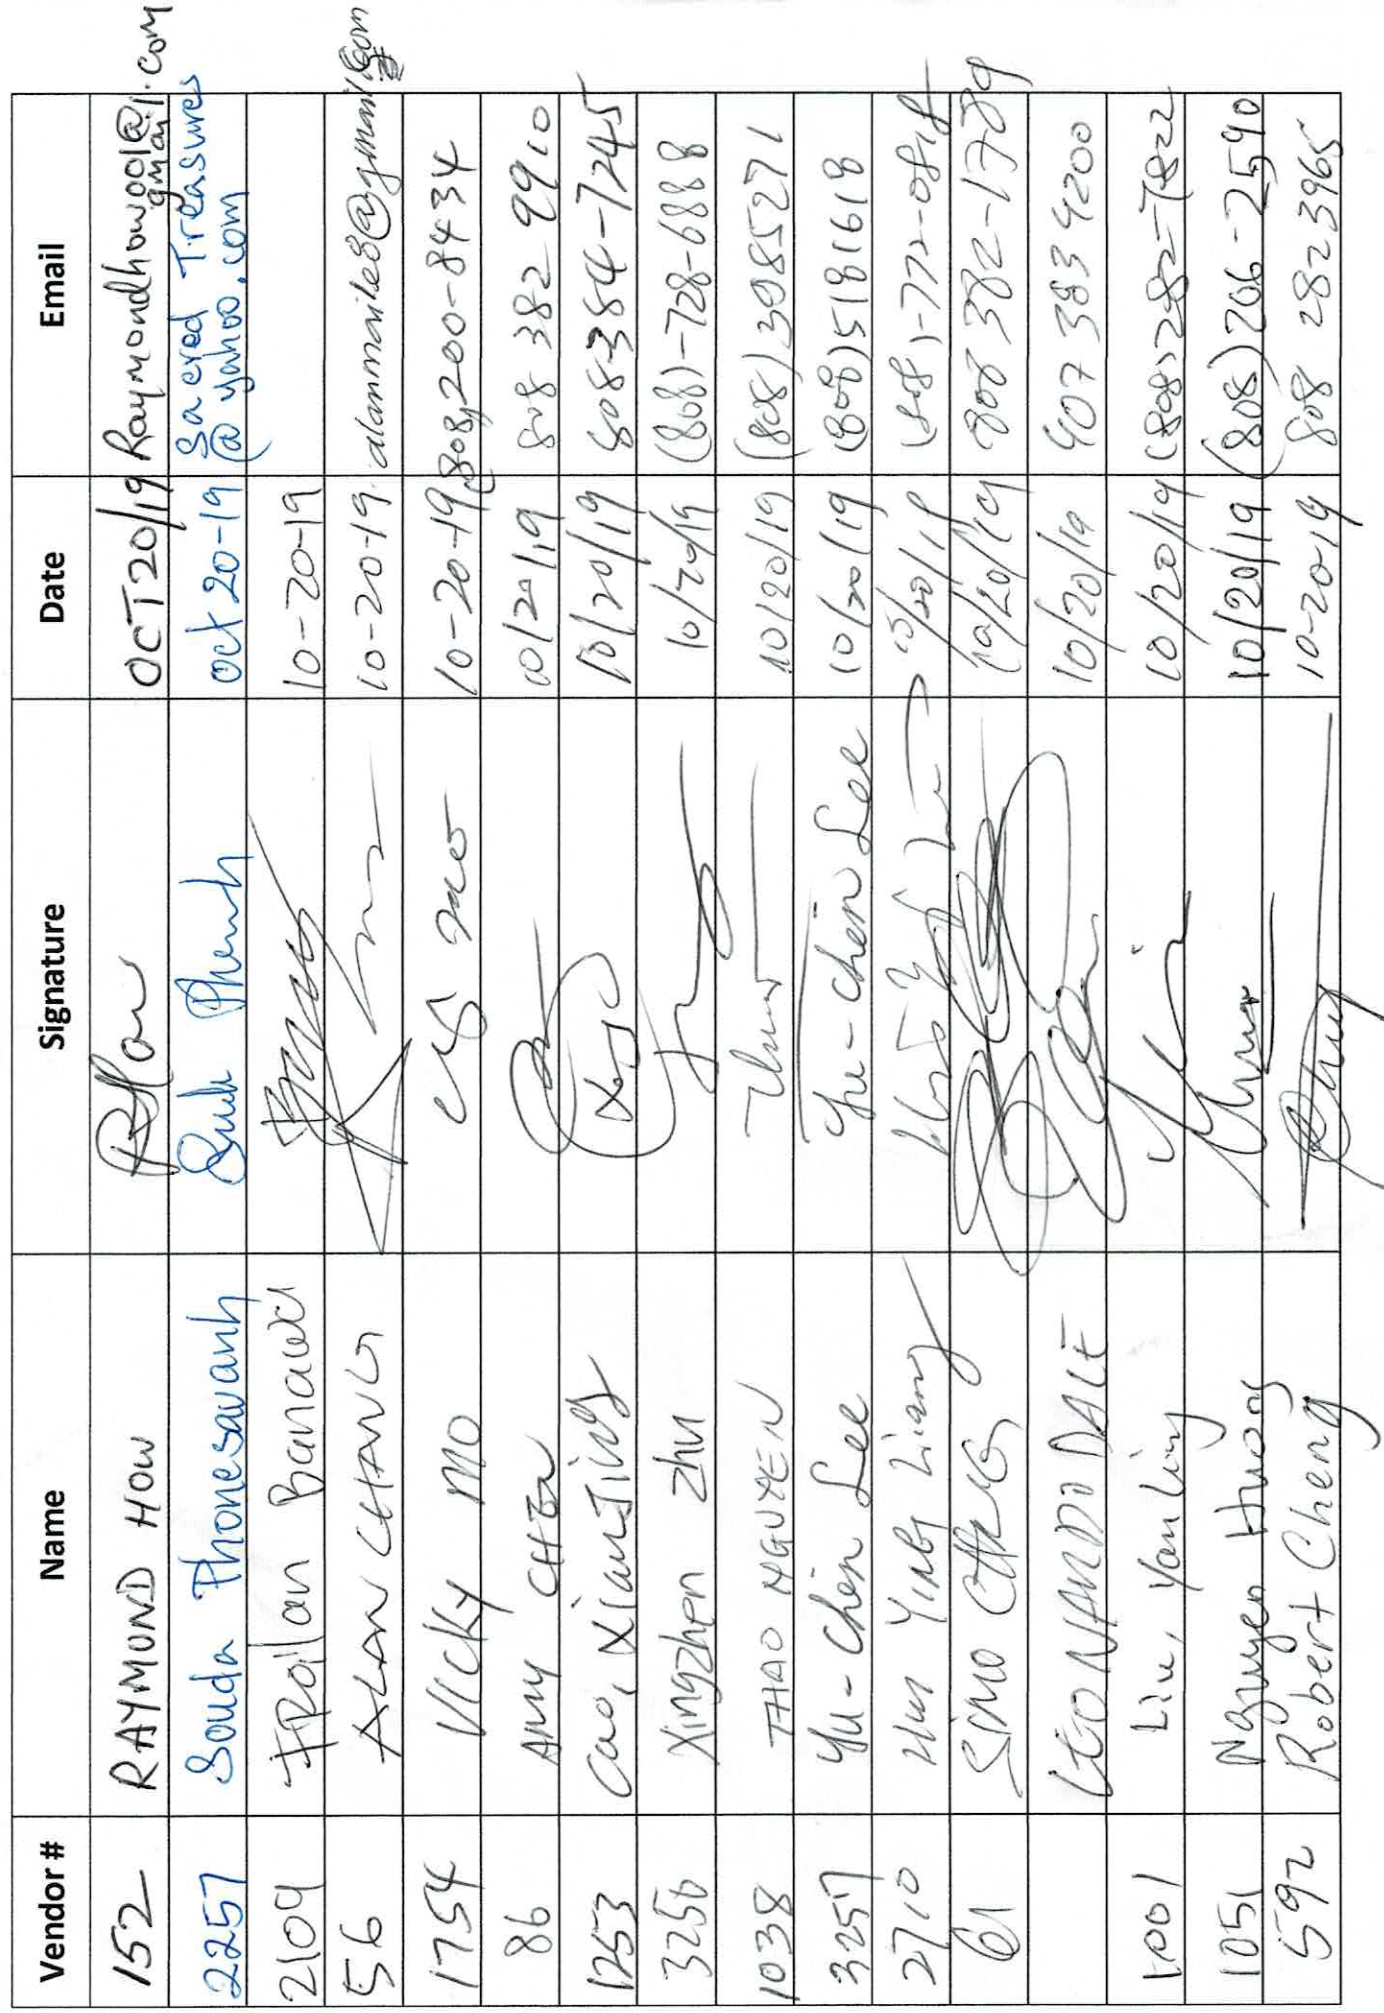 Vendor # Name Signature Date Email
152 RAYMOND HOW RHow OCT 20/19 Raymondhow001@gmail.com
2257 Souda Phonesavanh oct 20-19 Sacred Treasures
@yahoo.com
2109 Froilan 10-20-19
56 ALAN CHANG 10-20-19 alanmike8@gmail.com
1754 Vicky MO 10-20-19 (808)200-8434
86 Amy 10/20/19 808 382-9910
1253 Cao, XianJing 10/20/19 808-384-7245
3256 Xingzhen Zhu 10/20/19 (808)-728-6888
1038 THAO NGUYEN 10/20/19 (808)3985271
3257 Yu-Chen Lee Yu-Chen Lee 10/20/19 (808)5181618
2710 Ying Liang (808)-772-0818
61 SIMO 10/20/19 808 382-1789
LEONARDO DALE 10/20/19 407 383 4200
1001 Liu, Yanling 10/20/19 (808)282-7822
1051 Nguyen Huong 10/20/19 (808)206-2590
592 Robert Cheng 10-20-19 808 282 3965